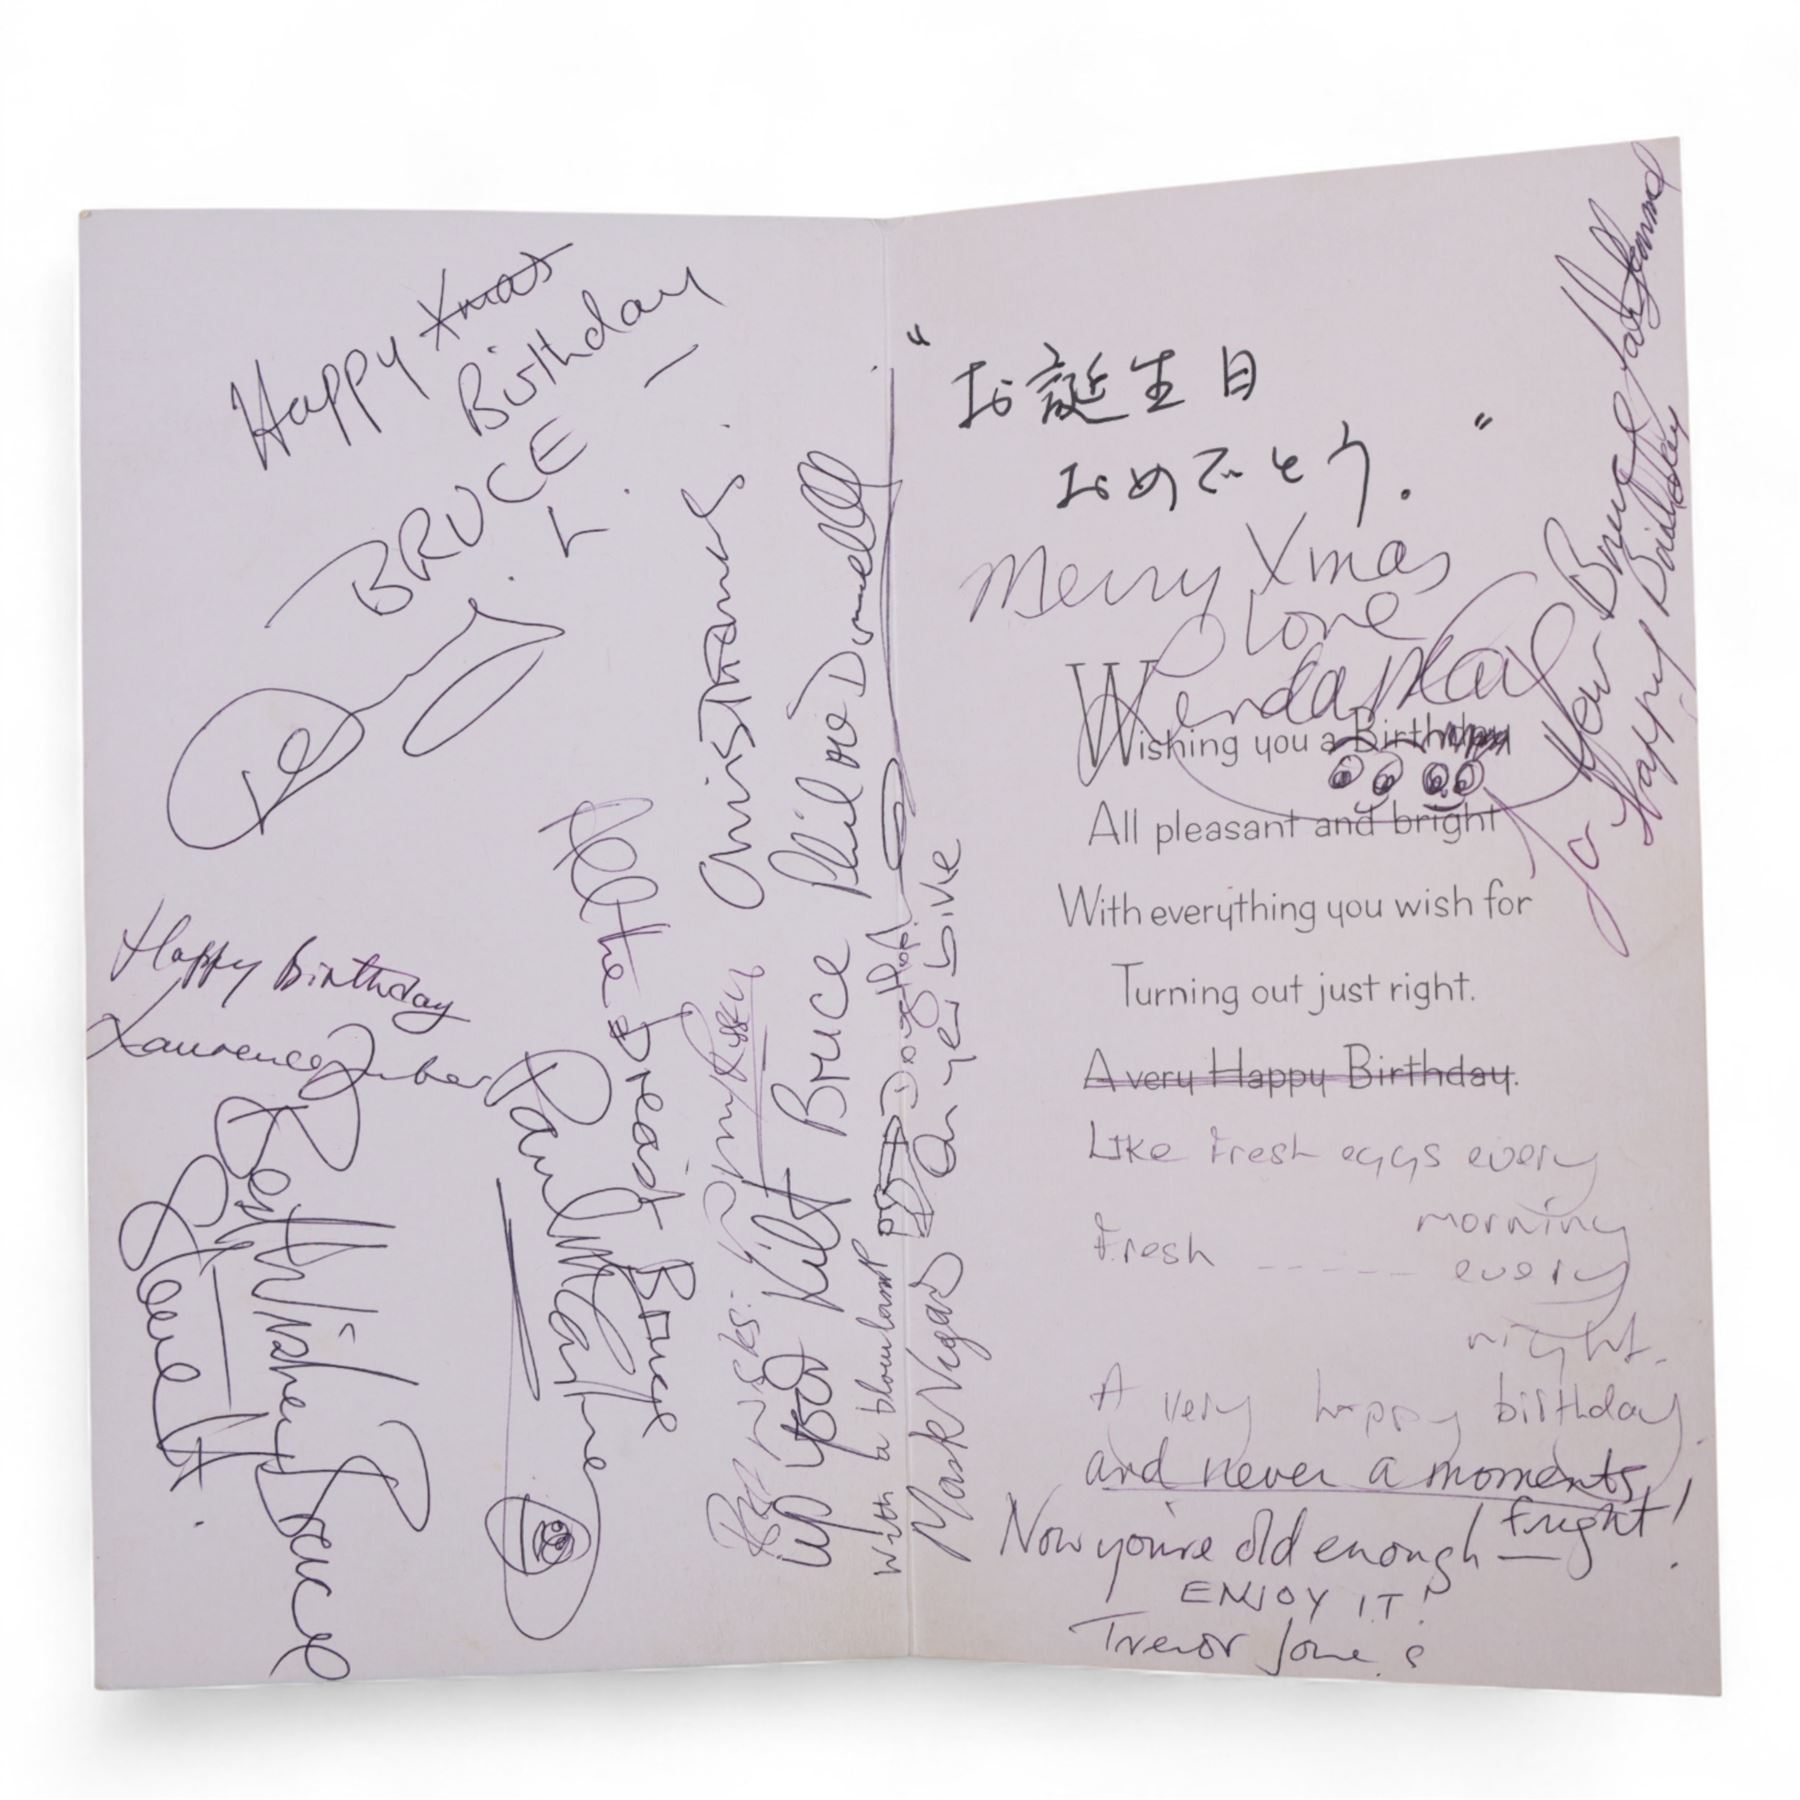 Happy Xmas
Birthday
BRUCE
Denny L.
Happy Birthday
Laurence Juber
Best Wishes Bruce
Steve H.
Paul McCartney
All the Best Bruce
Best Wishes:
Chris Thomas.
up your Kilt Bruce Phil McDonnell
with a blowlamp
Mark Vigars On yer bike
"お誕生日
おめでとう."
Merry Xmas
Love
Linda McC
To Your Bruce
Happy Birthday
Wishing you a Birthday
All pleasant and bright
With everything you wish for
Turning out just right.
A very Happy Birthday.
Like Fresh eggs every
morning
Fresh ----- every
night.
A very happy birthday
and never a moments
fright!
Now you're old enough
ENJOY IT!
Trevor Jones